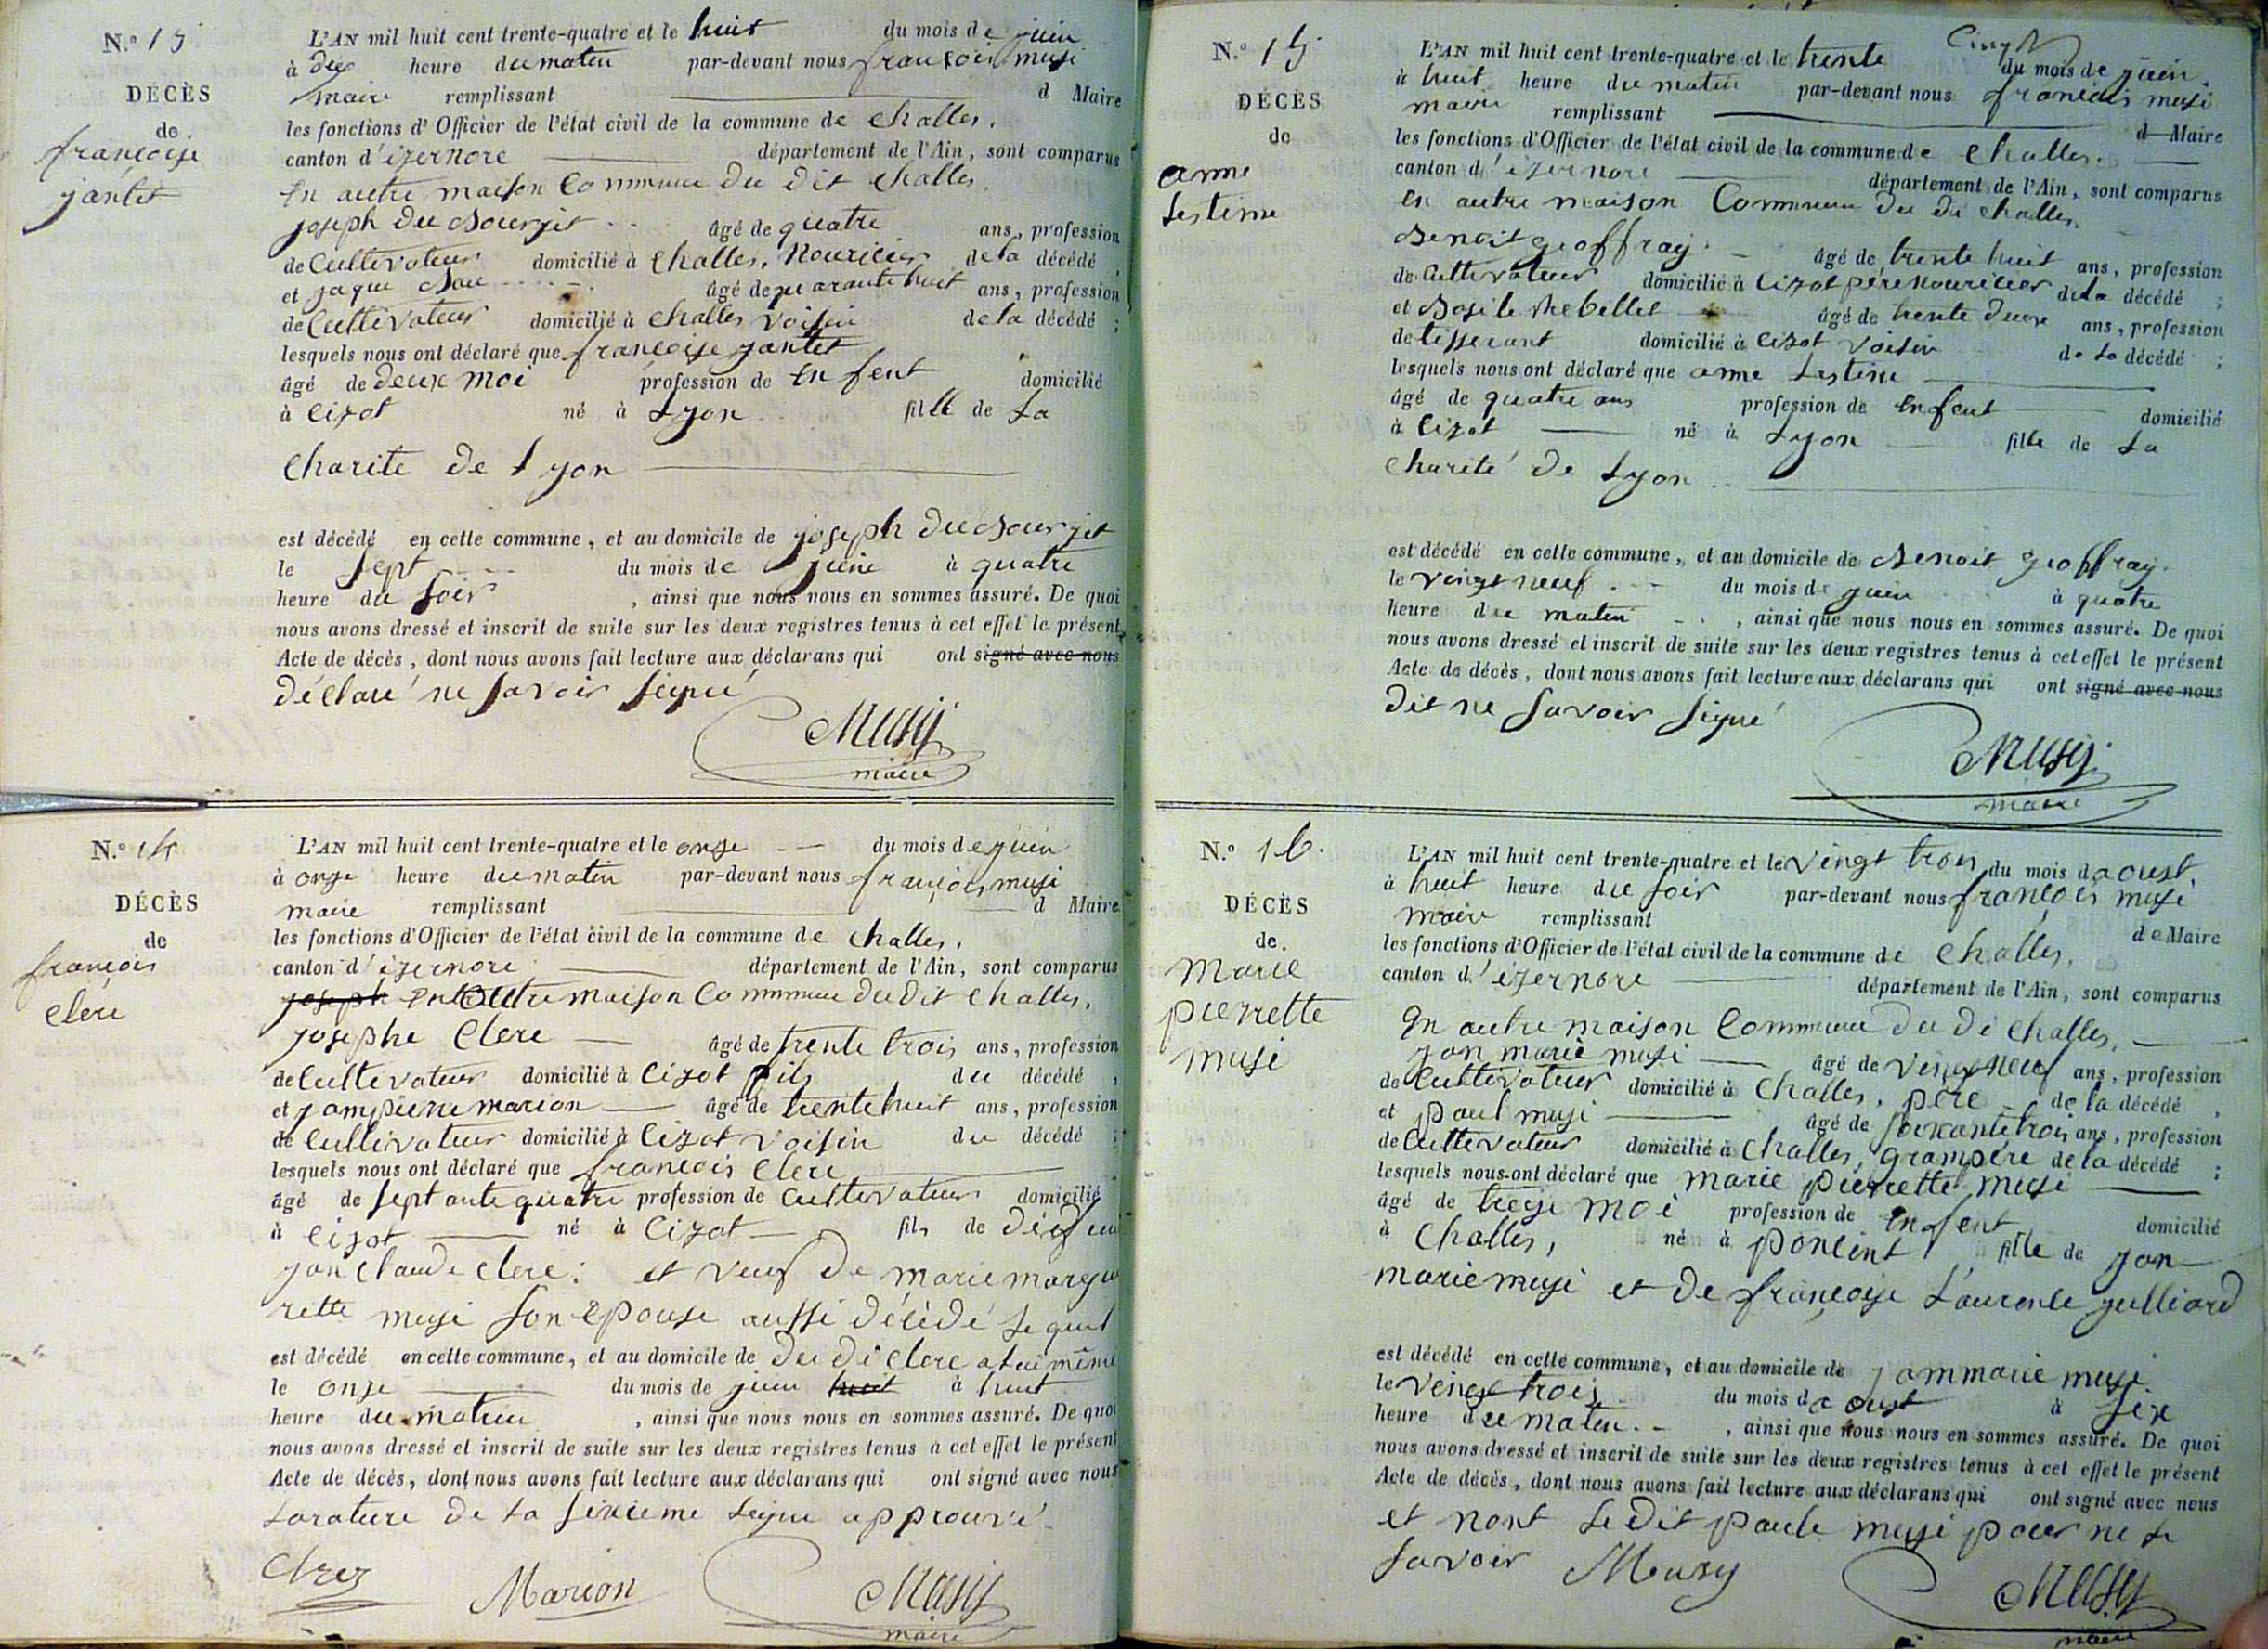 N.º 13
DÉCÈS
de
françoise
jantet
L'AN mil huit cent trente-quatre et le huit du mois de juin
à dix heure du matin par-devant nous françois musi
maire remplissant d Maire
les fonctions d'Officier de l'état civil de la commune de challes,
canton d'izernore département de l'Ain, sont comparus
En autre maison Commune du dit challes.
joseph du Bourjet âgé de quatre ans, profession
de Cultivateur domicilié à Challes, Nouricier de la décédé ,
et jaque âgé de quarante huit ans, profession
de Cultivateur domicilié à Challes voisin de la décédé ;
lesquels nous ont déclaré que françoise jantet
âgé de deux moi profession de En fent domicilié
à Cizot né à Lyon fille de La
Charité de Lyon
est décédé en cette commune, et au domicile de joseph du Bourjet
le Sept du mois de juin à quatre
heure du Soir , ainsi que nous nous en sommes assuré. De quoi
nous avons dressé et inscrit de suite sur les deux registres tenus à cet effet le présent
Acte de décès, dont nous avons fait lecture aux déclarans qui ont signé avec nous
déclaré ne Savoir Signé
Musy
maire
N.º 14
DÉCÈS
de
françois
clere
L'AN mil huit cent trente-quatre et le onze du mois de juin
à onze heure du matin par-devant nous françois musi
maire remplissant d Maire
les fonctions d'Officier de l'état civil de la commune de challes,
canton d'izernore département de l'Ain, sont comparus
joseph En autre maison Commune du dit Challes,
josephe Clere âgé de trente trois ans, profession
de Cultivateur domicilié à Cizot fils du décédé ,
et jampierre marion âgé de trente huit ans, profession
de Cultivateur domicilié à Cizot voisin du décédé ;
lesquels nous ont déclaré que françois Clere
âgé de Sept ante quatre profession de Cultivateur domicilié
à Cizot né à Cizot fils de défeu
jan Claude Clere: et veuf de marie margu
rette musi Son épouse aussi décédé Le quel
est décédé en cette commune, et au domicile de du di Clere a lui même
le onze du mois de juin huit à huit
heure du matin , ainsi que nous nous en sommes assuré. De quoi
nous avons dressé et inscrit de suite sur les deux registres tenus à cet effet le présent
Acte de décès, dont nous avons fait lecture aux déclarans qui ont signé avec nous
La rature de La Sixieme Ligne approuvé
Marion
Musy
maire
N.º 15
DÉCÈS
de
anne
Lestine
L'AN mil huit cent trente-quatre et le trente du mois de juin
à huit heure du matin par-devant nous françois musi
maire remplissant d Maire
les fonctions d'Officier de l'état civil de la commune de Challes.
canton d'izernore département de l'Ain, sont comparus
En autre maison Commune du di challes,
Benoit geoffray. âgé de trente huit ans, profession
de Cultivateur domicilié à Cizot père nouricier de la décédé ;
et Basile Rebellet âgé de trente deux ans, profession
de tisserant domicilié à Cizot voisin de La décédé ;
lesquels nous ont déclaré que anne Lestine
âgé de quatre ans profession de En fent domicilié
à Cizot né à Lyon fille de La
Charité de Lyon
est décédé en cette commune, et au domicile de Benoit geoffray.
le vingt neuf du mois de juin à quatre
heure du matin , ainsi que nous nous en sommes assuré. De quoi
nous avons dressé et inscrit de suite sur les deux registres tenus à cet effet le présent
Acte de décès, dont nous avons fait lecture aux déclarans qui ont signé avec nous
Dit ne Savoir Signé
Musy
maire
N.º 16.
DÉCÈS
de.
Marie
pierrette
musi
L'AN mil huit cent trente-quatre et le vingt trois du mois d aoust
à huit heure du Soir par-devant nous françois musi
maire remplissant de Maire
les fonctions d'Officier de l'état civil de la commune de Challes,
canton d'izernore département de l'Ain, sont comparus
En autre maison Commune du di Challes,
jan marie musi âgé de vingt neuf ans, profession
de Cultivateur domicilié à Challes, père de la décédé ,
et paul musi âgé de Soixante trois ans, profession
de Cultivateur domicilié à Challes, grampère de la décédé ;
lesquels nous ont déclaré que marie pierrette musi
âgé de treize moi profession de En fent domicilié
à Challes, né à poncint fille de jan
marie musi et de françoise Laurence julliard
est décédé en cette commune, et au domicile de jammarie musi
le vingt trois du mois d aoust à Six
heure du matin. , ainsi que nous nous en sommes assuré. De quoi
nous avons dressé et inscrit de suite sur les deux registres tenus à cet effet le présent
Acte de décès, dont nous avons fait lecture aux déclarans qui ont signé avec nous
et nont Le dit paule musi pour ne Le
Savoir Meusy
Musy
maire